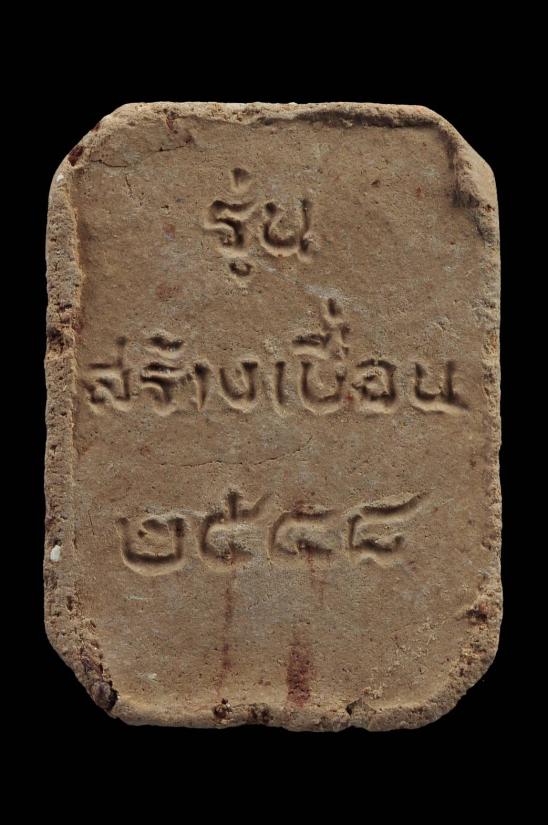 รุ่น
สร้างเขื่อน
๒๕๔๘